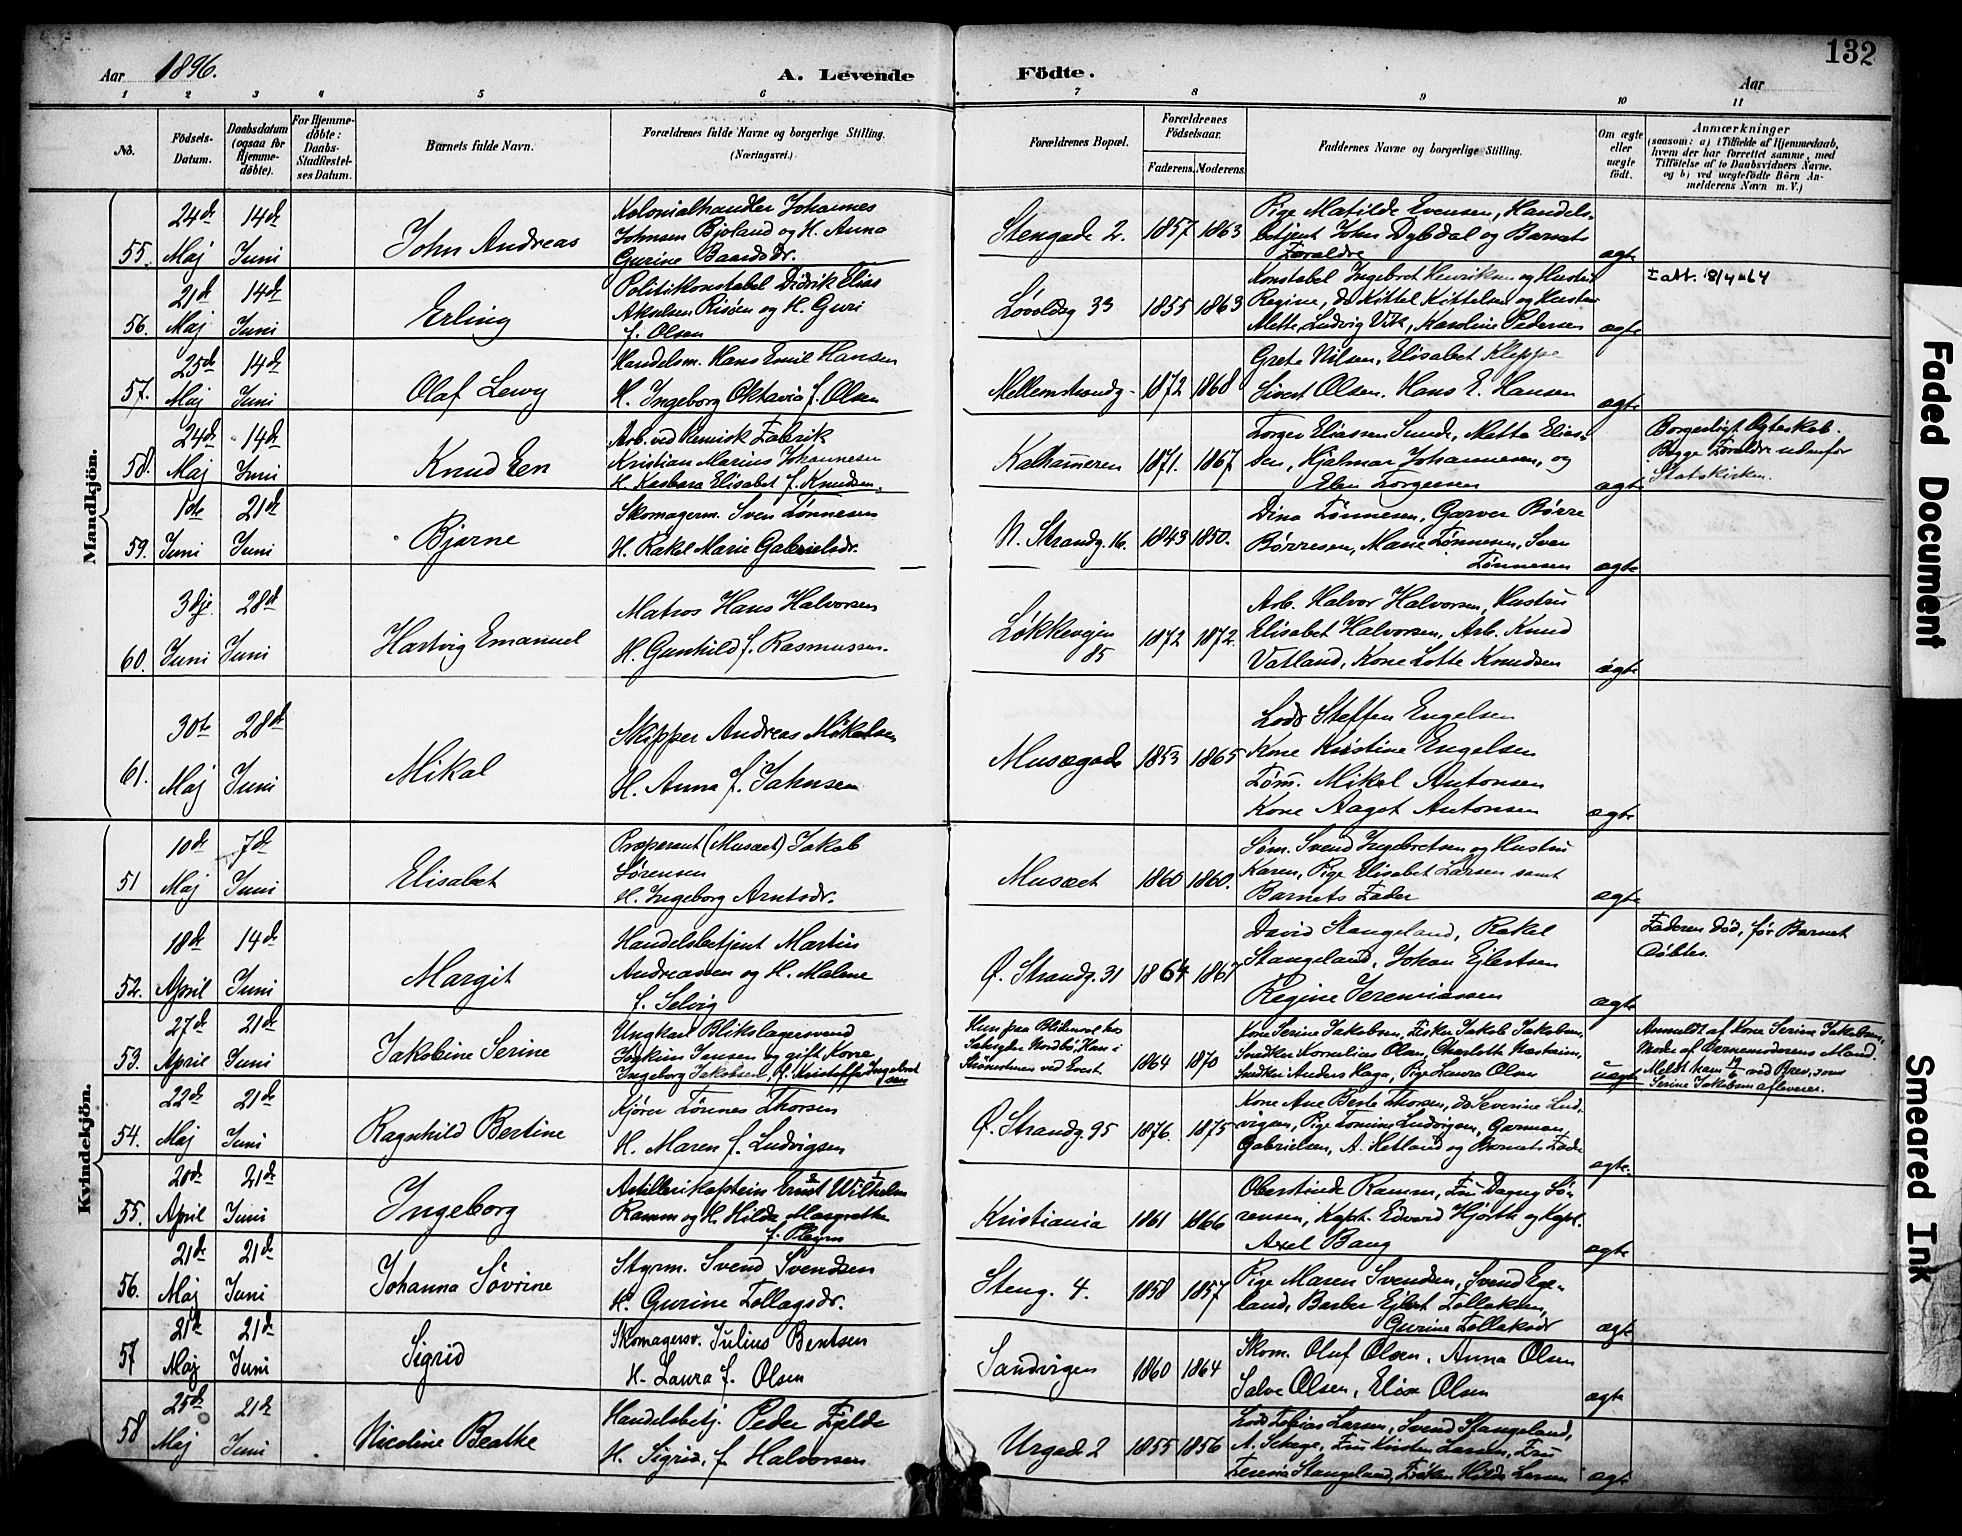 Aar 1896.
A. Levende Födte.
Aar
132
1 2 3 4 5 6 7 8 9 10 11
No.
Födsels-Datum.
Daabsdatum (ogsaa for Hjemme-döbte).
For Hjemme-döbte: Daabs-Stadfæstel-ses Datum.
Barnets fulde Navn.
Forældrenes fulde Navne og borgerlige Stilling. (Næringsvei.)
Forældrenes Bopæl.
Forældrenes Födselsaar.
Faderens. Moderens.
Faddernes Navne og borgerlige Stilling.
Om ægte eller uægte født.
Anmærkninger (saasom: a) i Tilfælde af Hjemmedaab, hvem der har forrettet samme, med Tilföielse af to Daabsvidners Navne, og b) ved uægtefödte Börn An-melderens Navn m. V.)
Mandkjön.
55. 24de Maj 14de Juni John Andreas
Kolonialhandler Johannes
Johnsen Bjoland og H. Anna
Gurine Baardsdr.
Stengade 2. 1857 1863
Pige Matilde Evensen, Handels-
betjent John Dybdal og Barnets
Forældre
ægte
56. 21de Maj 14de Juni Erling
Politikonstabel Didrik Elias
Akselsen Risöen og H. Guri
f. Olsen
33 1855 1863
Konstabel Ingebret Henriksen og Hustru
Regine, do Kittel Kittelsen og Hustru
Mette, Ludvig Vik, Karoline Pedersen
ægte
57. 25de Maj 14de Juni Olaf Lewy
Handelsm. Hans Emil Hansen
H. Ingeborg Oktavia f. Olsen
Mellemstrandg. 1872 1868
Grete Nilsen, Elisabet Kleppe
Sivert Olsen, Hans E. Hansen
ægte
58. 24de Maj 14de Juni Knud Een
Arb. ved Kemisk Fabrik
Kristian Marius Johannesen
H. Barbara Elisabet f. Knudsen.
Kalhameren 1871. 1867
Torger Eliassen Sunde, Mette Elias-
sen, Hjalmar Johannesen, og
Elen Torgersen
ægte
Borgerligt Ægteskab.
Begge Forældre udenfor
Statskirken.
59. 1ste Juni 21de Juni Bjarne
Skomagerm. Sven Tönnesen
H. Rakel Marie Gabrielsdr.
N. Strandg. 16. 1843 1850.
Dina Tönnesen, Garver Börre
Börresen, Marie Tönnesen, Sven
Tönnesen
ægte
60. 3dje Juni 28de Juni Hartvig Emanuel
Matros Hans Halvorsen
H. Gunhild f. Rasmussen.
Løkkevejen
85 1872 1872.
Arb. Halvor Halvorsen, Hustru
Elisabet Halvorsen, Arb. Knud
Vatland, Kone Lotte Knudsen
ægte
61. 30te Maj 28de Juni Mikal
Skipper Andreas Mikalsen
H. Anna f. Jahnsen
Musægade 1853 1865
Lods Steffen Engelsen
Kone Kristine Engelsen
Töm. Mikal Antonsen
Kone Aagot Antonsen
ægte
Kvindekjön.
51 10de Maj 7de Juni Elisabet
Præperant (Musæet) Jakob
Sörensen
H. Ingeborg Arntsdr.
Musæet 1860 1860.
Söm. Svend Ingebretsen og Hustru
Karen, Pige Elisabet Larsen samt
Barnets Fader
ægte
52. 18de April 14de Juni Margit
Handelsbetjent Martin
Andreassen og H. Malene
f. Selvig
Ø. Strandg. 31 1864 1867
David Stangeland, Rakel
Stangeland, Johan Ejlertsen
Regine Jeremiassen
ægte
Faderen död, før Barnet
döbtes.
53. 27de April 21de Juni Jakobine Serine
Ungkarl Blikslagersvend
Joakim Jansen og gift Kone
Ingeborg Jakobsen, f. Kristoffer Ingebret
sen
1864 1870
Kone Serine Jakobsen, Fisker Jakob Jakobsen,
Snedker Kornelius Olsen, Charlotte Nastasien,
Snedker Anders Haga, Pige Laura Olsen
uægte
Anmeldt af Kone Serine Jakobsen,
Moder af Barnemoderens Mand.
Meldt ham 19/6 ved Brev, som
Serine Jakobsen afleverer.
54. 22de Maj 21de Juni Ragnhild Bertine
Kjörer Tönnes Thorsen
H. Maren f. Ludvigsen
Ø. Strandg. 95 1876. 1875
Kone Ane Berte Thorsen, do Severine Lud-
vigsen, Pige Tomine Ludvigsen, German
Gabrielsen, A. Hetland og Barnets Fader
ægte.
55. 20de April 21de Juni Ingeborg
Artillerikaptein Ernst Wilhelm
Ramm og H. Hilda Margrethe
f. Pleym
Kristiania 1861 1866
Oberstinde Ramm, Fru Dagny Sö-
rensen, Kapt. Edvard Hjorth og Kapt.
Axel Bang
ægte
56. 21de Maj 21de Juni Johanna Sövrine
Styrm. Svend Svendsen
H. Gurine Tollagsdr.
Steng. 4. 1858 1857
Pige Maren Svendsen, Svend Ege-
land, Barber Ejlert Tollaksen,
Gurine Tollaksdr
ægte
57 21de Maj 21de Juni Sigrid
Skomagersv. Julius Bentsen
H. Laura f. Olsen
Sandvigen 1860 1864
Skom. Oluf Olsen, Anna Olsen
Salve Olsen, Elise Olsen
ægte
58 25de Maj 21de Juni Nicoline Beathe
Handelsbetj. Peder Fjelde
H. Sigrid, f. Halvorsen
Urgade 2 1855 1856
Lods Tobias Larsen, Svend Stangeland,
A. Schage, Fru Kirsten Larsen, Fru
Teresia Stangeland, Fröken Hilda Larsen
ægte
Faded Document
Smeared Ink